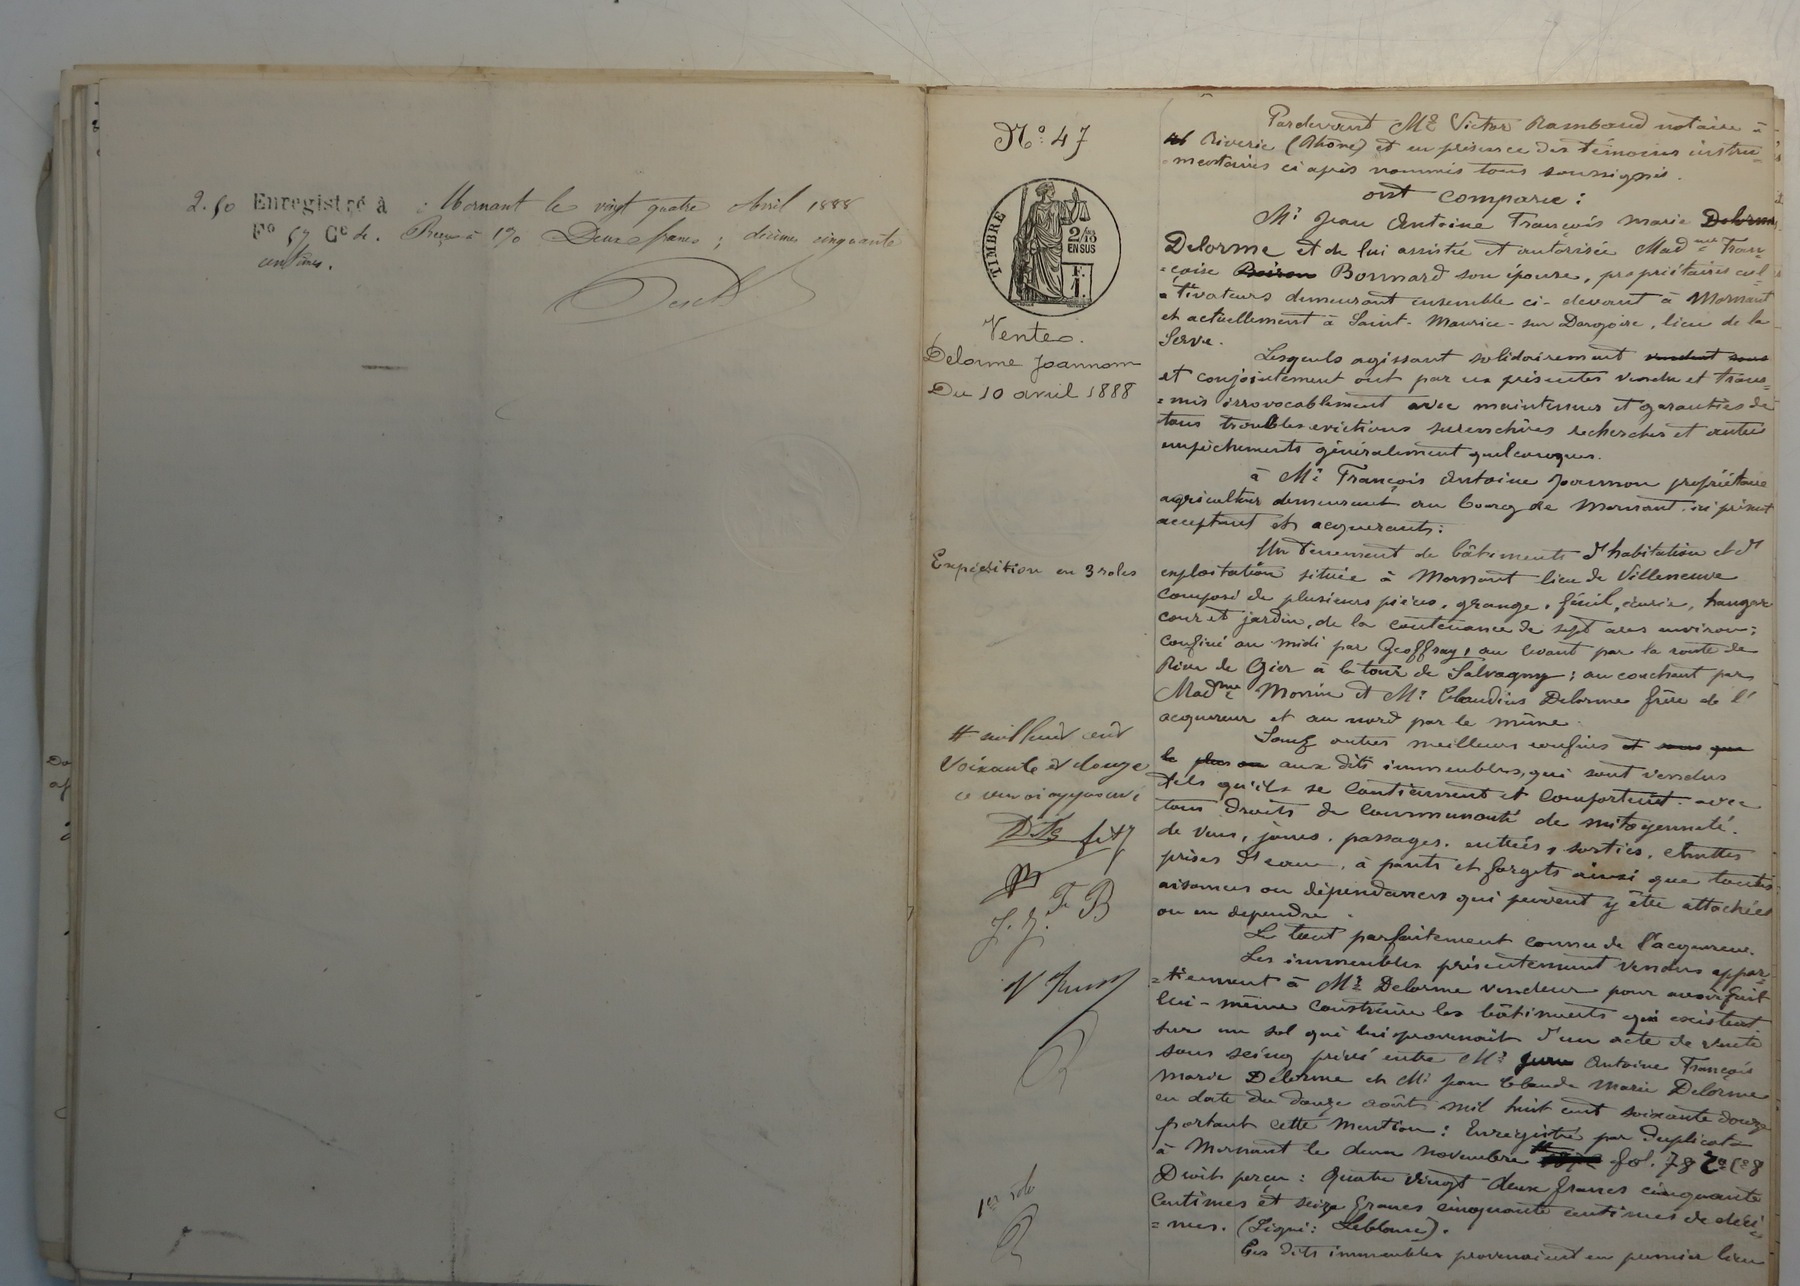 2.50 Enregistré à Mornant le vingt quatre Avril 1888
Fo 57 Ce 4. Reçu à 1% Deux francs ; décimes cinquante
centimes.
No: 47
TIMBRE
2/10
EN SUS
F.
1.
Vente.
Delorme Joannon
Du 10 avril 1888
Expédition en 3 roles
# mil huit cent
soixante et douze
ce renvoi approuvé
F B
J. J.
1er role
Pardevant Me Victor Rambaud notaire à
Riverie (Rhône) et en présence des témoins instru-
mentaires ci après nommés tous soussignés.
ont comparu :
Mr Jean Antoine François Marie Delorme
Delorme et de lui assistée et autorisée Madme Fran-
=çoise Bonnard son épouse, propriétaires cul-
=tivateurs demeurant ensemble ci-devant à Mornant
et actuellement à Saint-Maurice-sur Dargoire, lieu de la
Serve.
Lesquels agissant solidairement vendent sous
et conjointement ont par ces présentes vendu et trans=
=mis irrovocablement avec maintenues et garanties de
tous troubles evictions surenchères recherches et autres
empêchements généralement quelconques.
à Mr François Antoine Joannon propriétaire
agriculteur demeurant au bourg de Mornant, ici présent
acceptant et acquerants :
Un Tenement de bâtiments d'habitation et d'
exploitation située à Mornant lieu de Villeneuve
composé de plusieurs pièces, grange, fénil, écurie, hangar
cour et jardin, de la contenance de sept ares environ ;
confiné au midi par Geoffray, au levant par la route de
Rive de Gier à la tour de Salvagny ; au couchant par
Madme Monin et Mr Claudius Delorme frère de l'
acquereur et au nord par le même.
Sauf autres meilleurs confins et sans que
le plus ou aux dits immeubles, qui sont vendus
tels qu'ils se contiennent et comportent avec
tous droits de communauté de mitoyenneté.
de vues, jours, passages, entrées, sorties, chuttes
prises d'eau, à pants et forgets ainsi que toutes
aisances ou dépendances qui peuvent y être attachées
ou en dependre.
Le tout parfaitement connu de l'acquereur.
Les immeubles présentement vendus appar-
=tiennent à Mr Delorme vendeur pour avoir fait
lui-même construire les bâtiments qui existent
sur un sol qui lui provenait d'un acte de vente
sous seing privé entre Mr Jean Antoine François
Marie Delorme et Mr Jean Claude Marie Delorme
en date du douze août mil huit cent soixante douze
portant cette mention : Enregistré par duplicata
à Mornant le deux novembre # fol. 78 Ro Ce 8
Droit perçu : Quatre vingt deux francs cinquante
centimes et seize francs cinquante centimes de déci=
=mes. (Signé : Leblanc).
Les dits immeubles provenaient en premier lieu